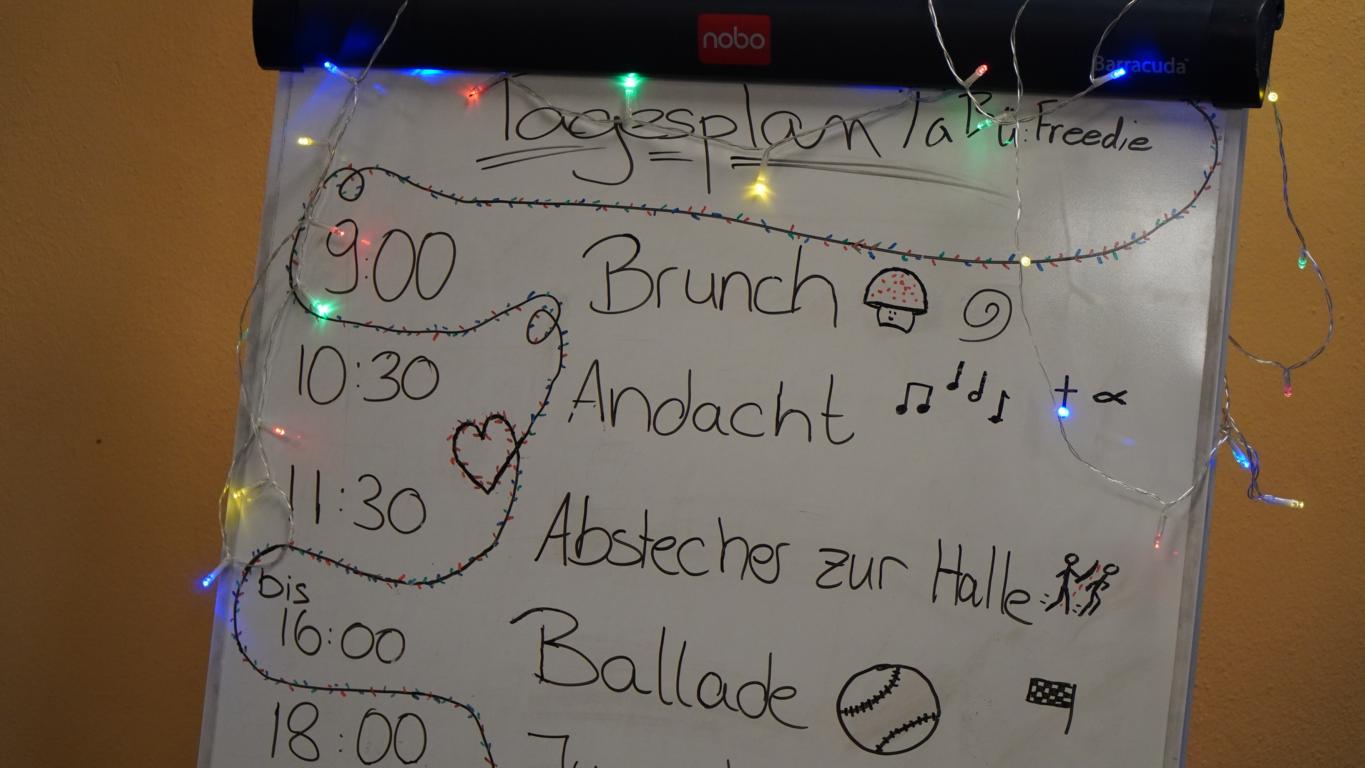 nobo
Barracuda
Tagesplan TaBü: Freedie
9:00 Brunch
10:30 Andacht
11:30 Abstecher zur Halle
bis
16:00 Ballade
18:00